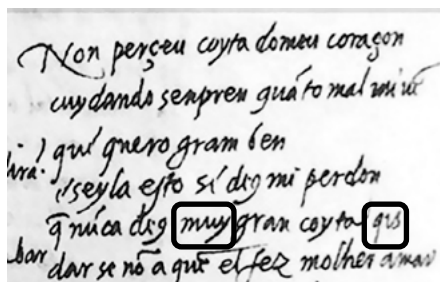 Non perçeu coyta do meu coraçon
cuydando senpren quãto mal mi uẽ
! qui quero gram ben
lira! e seyla esto si deg mi perdon
q̃ nũca deg muy gran coyta qis
bar dar se nõ a que el fez molher amar